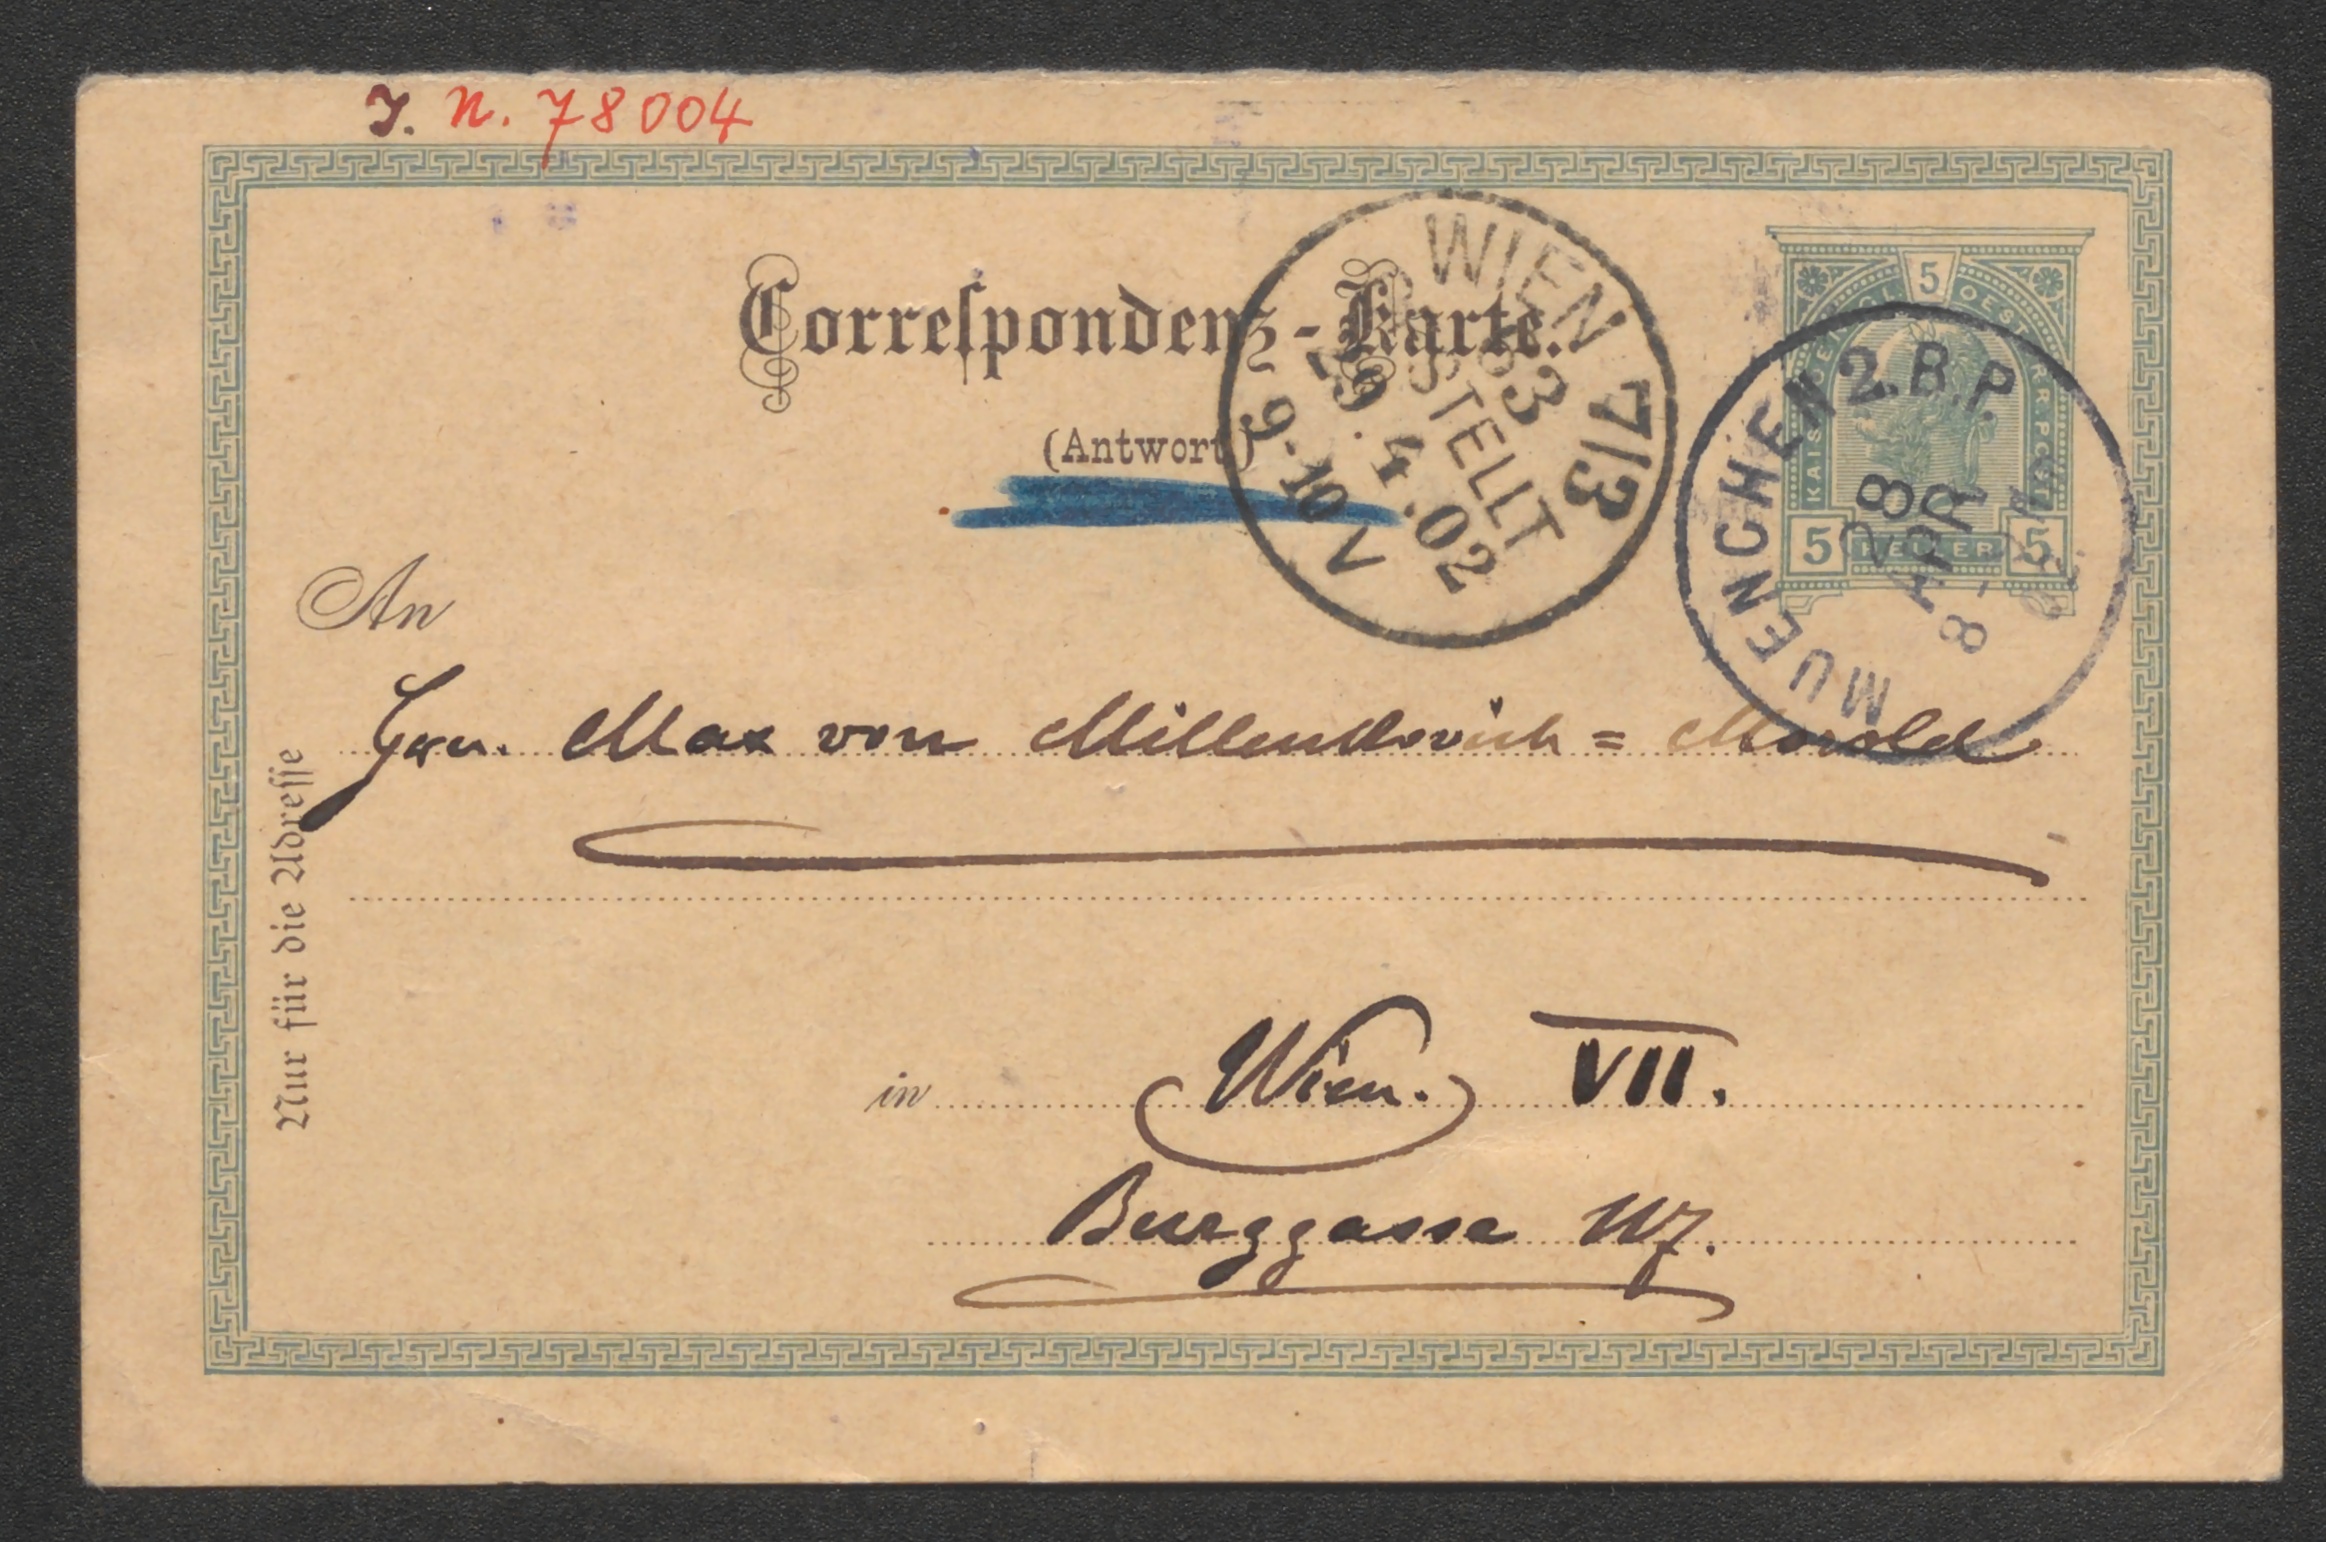 J. N. 78004
Correspondenz-Karte.
(Antwort)
WIEN 7/3
63
BESTELLT
29.4.02
9-10 V
5
KAISERL KOENIGL OESTERR POST
5 HELLER 5
MUENCHEN 2. B.P.
28
APR
8-
An
Hrn. Max von Millenkovich = Morold
Nur für die Adresse
in Wien. VII.
Burggasse 117.